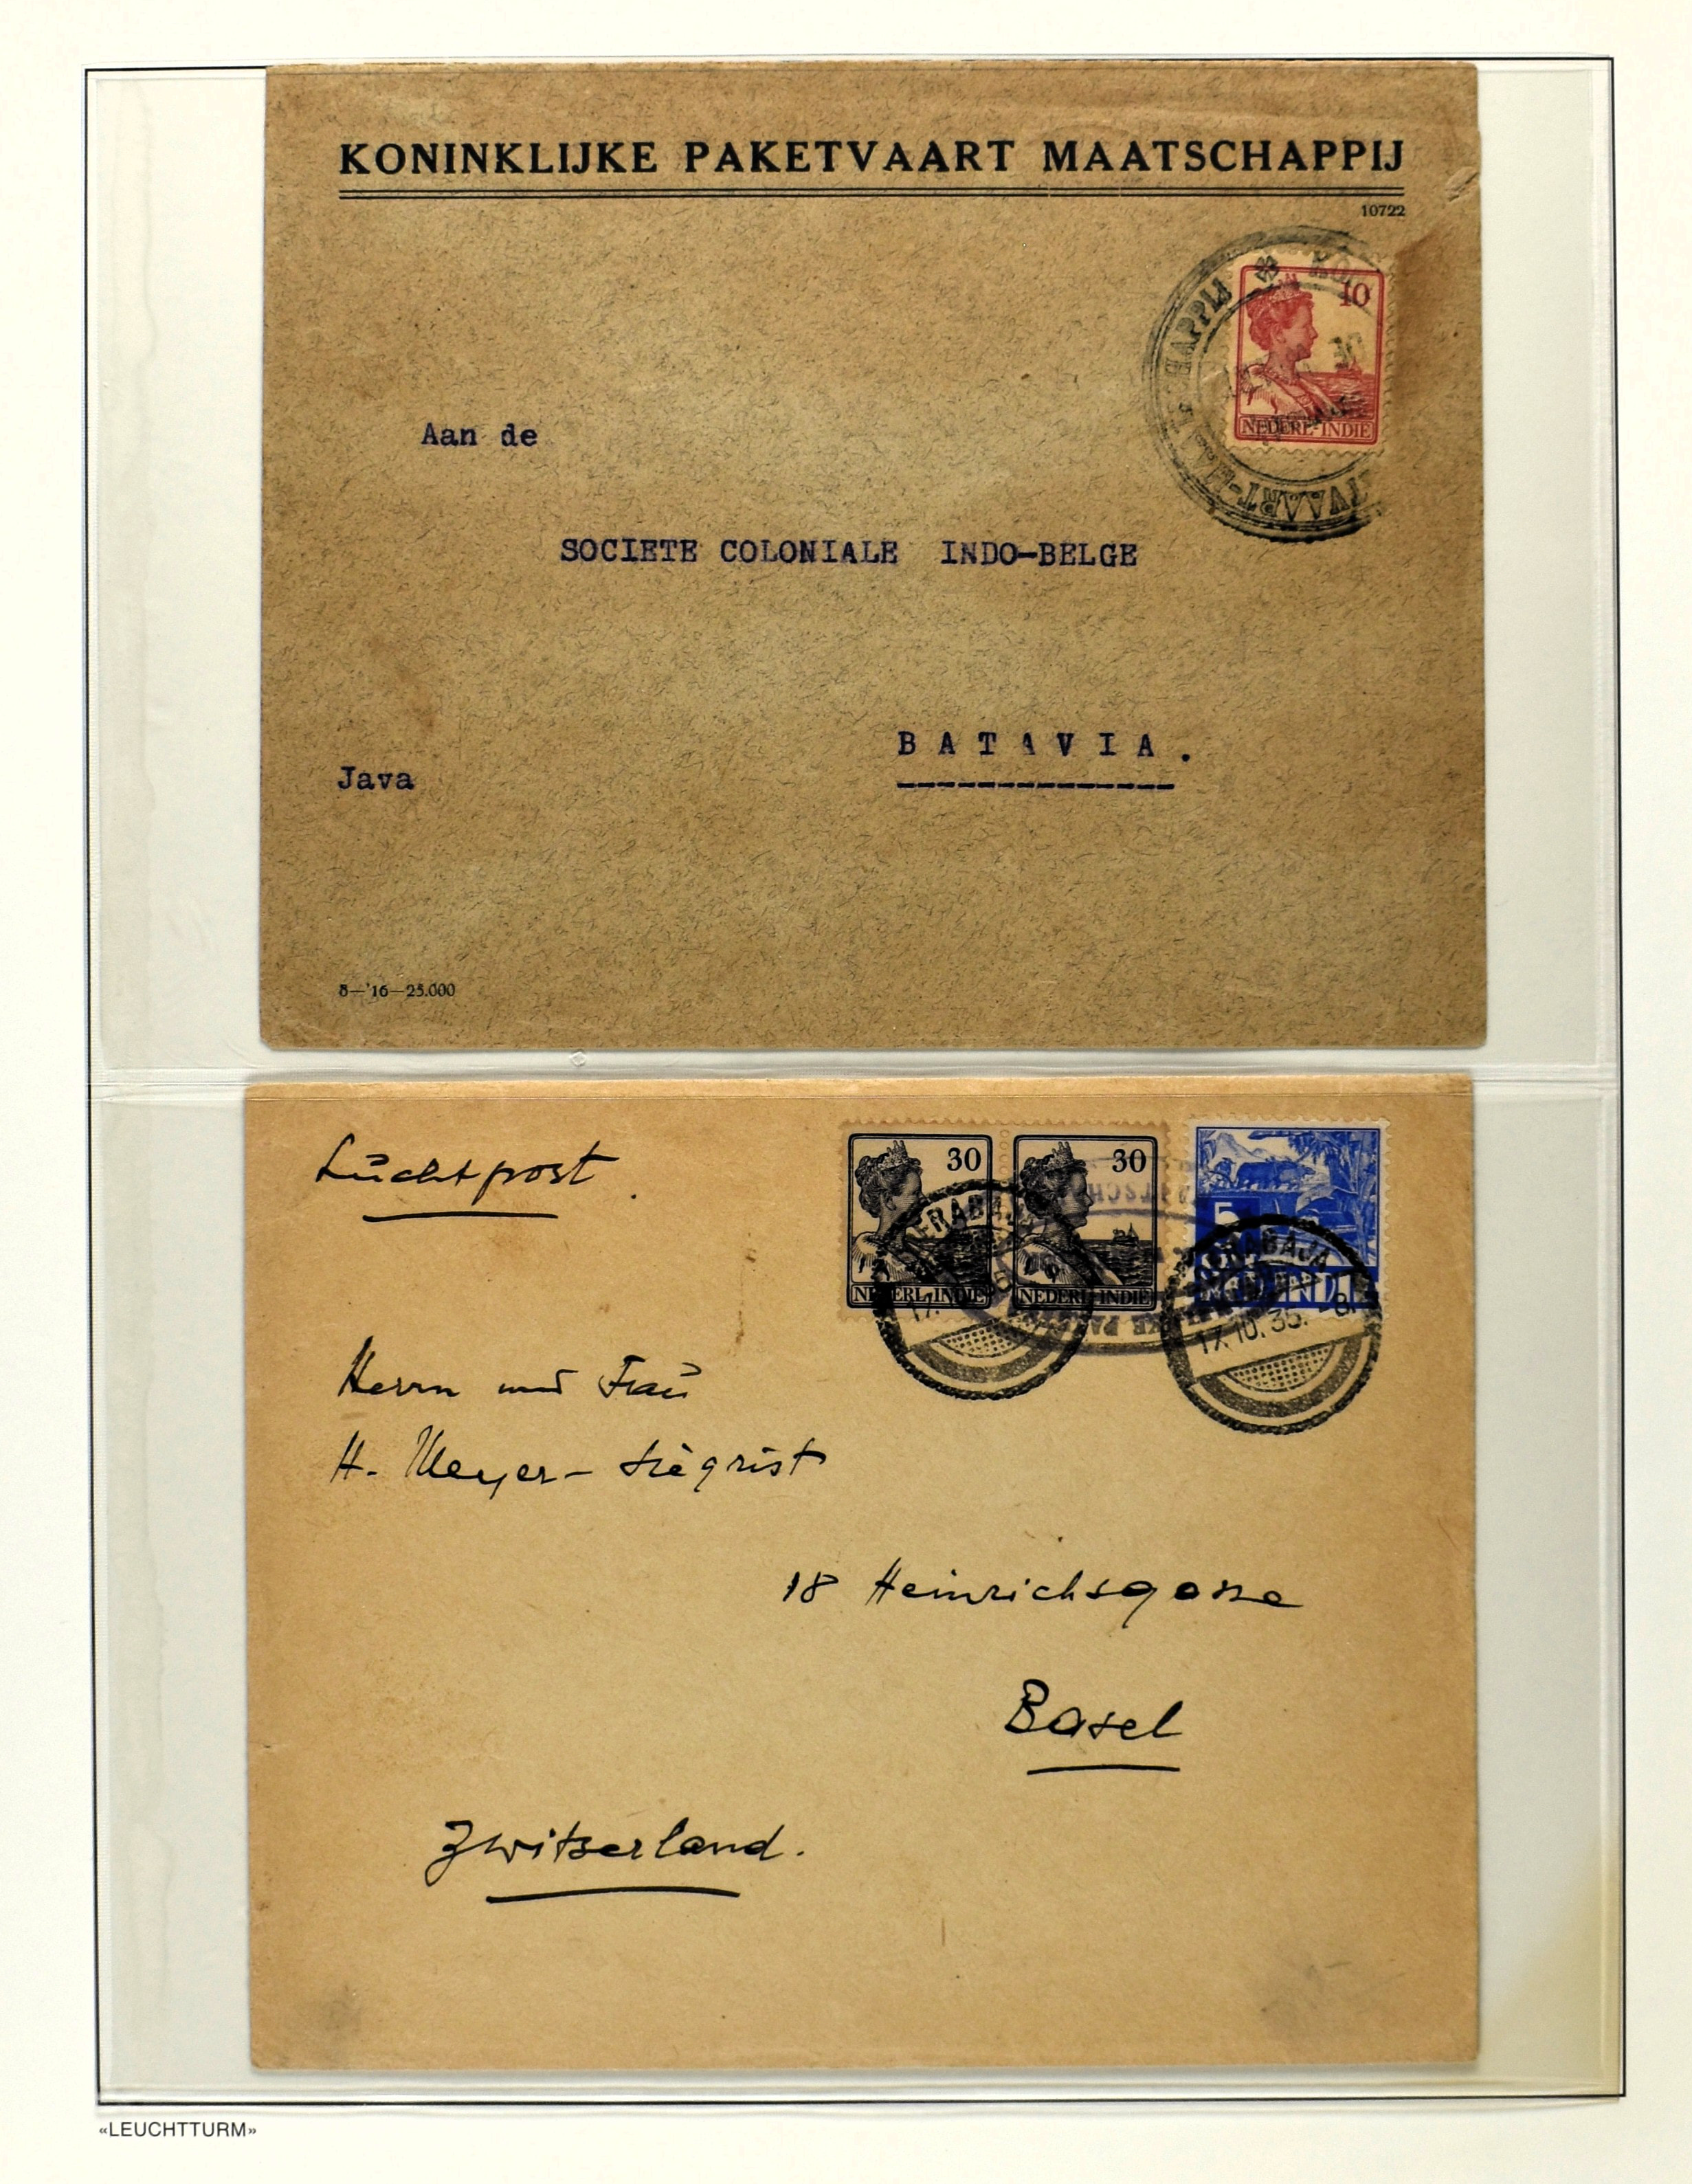 KONINKLIJKE PAKETVAART MAATSCHAPPIJ
10722
10
NEDERL-INDIE
Aan de
SOCIETE COLONIALE INDO-BELGE
BATAVIA.
Java
8—'16—25.000
Luchtpost.
30
30
5
NEDERL-INDIE
NEDERL-INDIE
SOERABAJA
17.10.35. -8
Herrn und Frau
H. Meyer-Siegrist
18 Heinrichsgasse
Basel
Zwitserland.
«LEUCHTTURM»